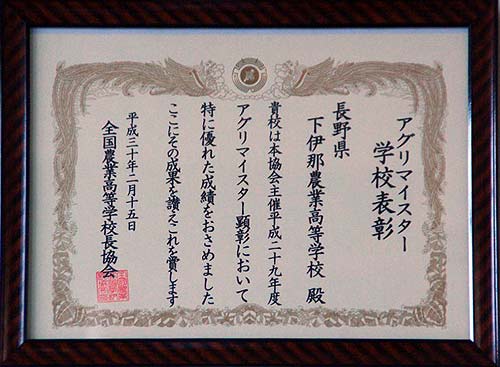 アグリマイスター
学校表彰
長野県
下伊那農業高等学校 殿
貴校は本協会主催平成二十九年度
アグリマイスター顕彰において
特に優れた成績をおさめました
ここにその成果を讃えこれを賞します
平成三十年二月十五日
全国農業高等学校長協会